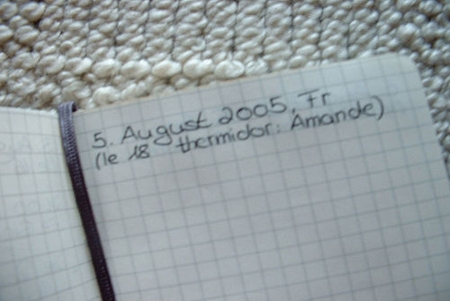 5. August 2005, Fr
(le 18 thermidor: Amande)